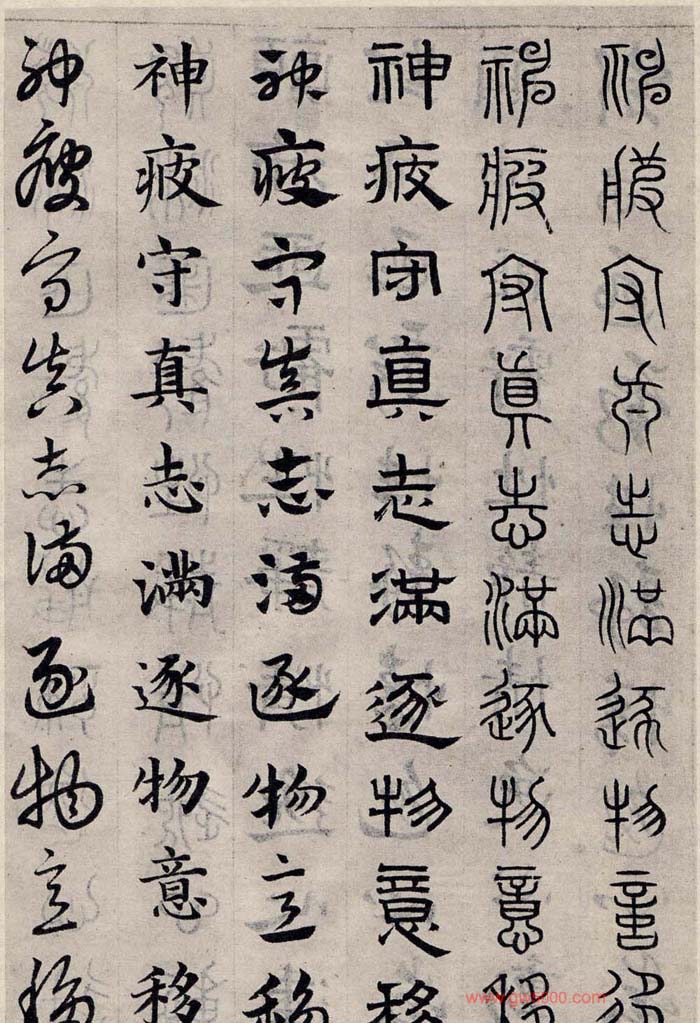 神疲守真志滿逐物意移
神疲守真志滿逐物意移
神疲守真志滿逐物意移
神疲守真志满逐物意移
神疲守真志滿逐物意移
神疲守真志满逐物意移